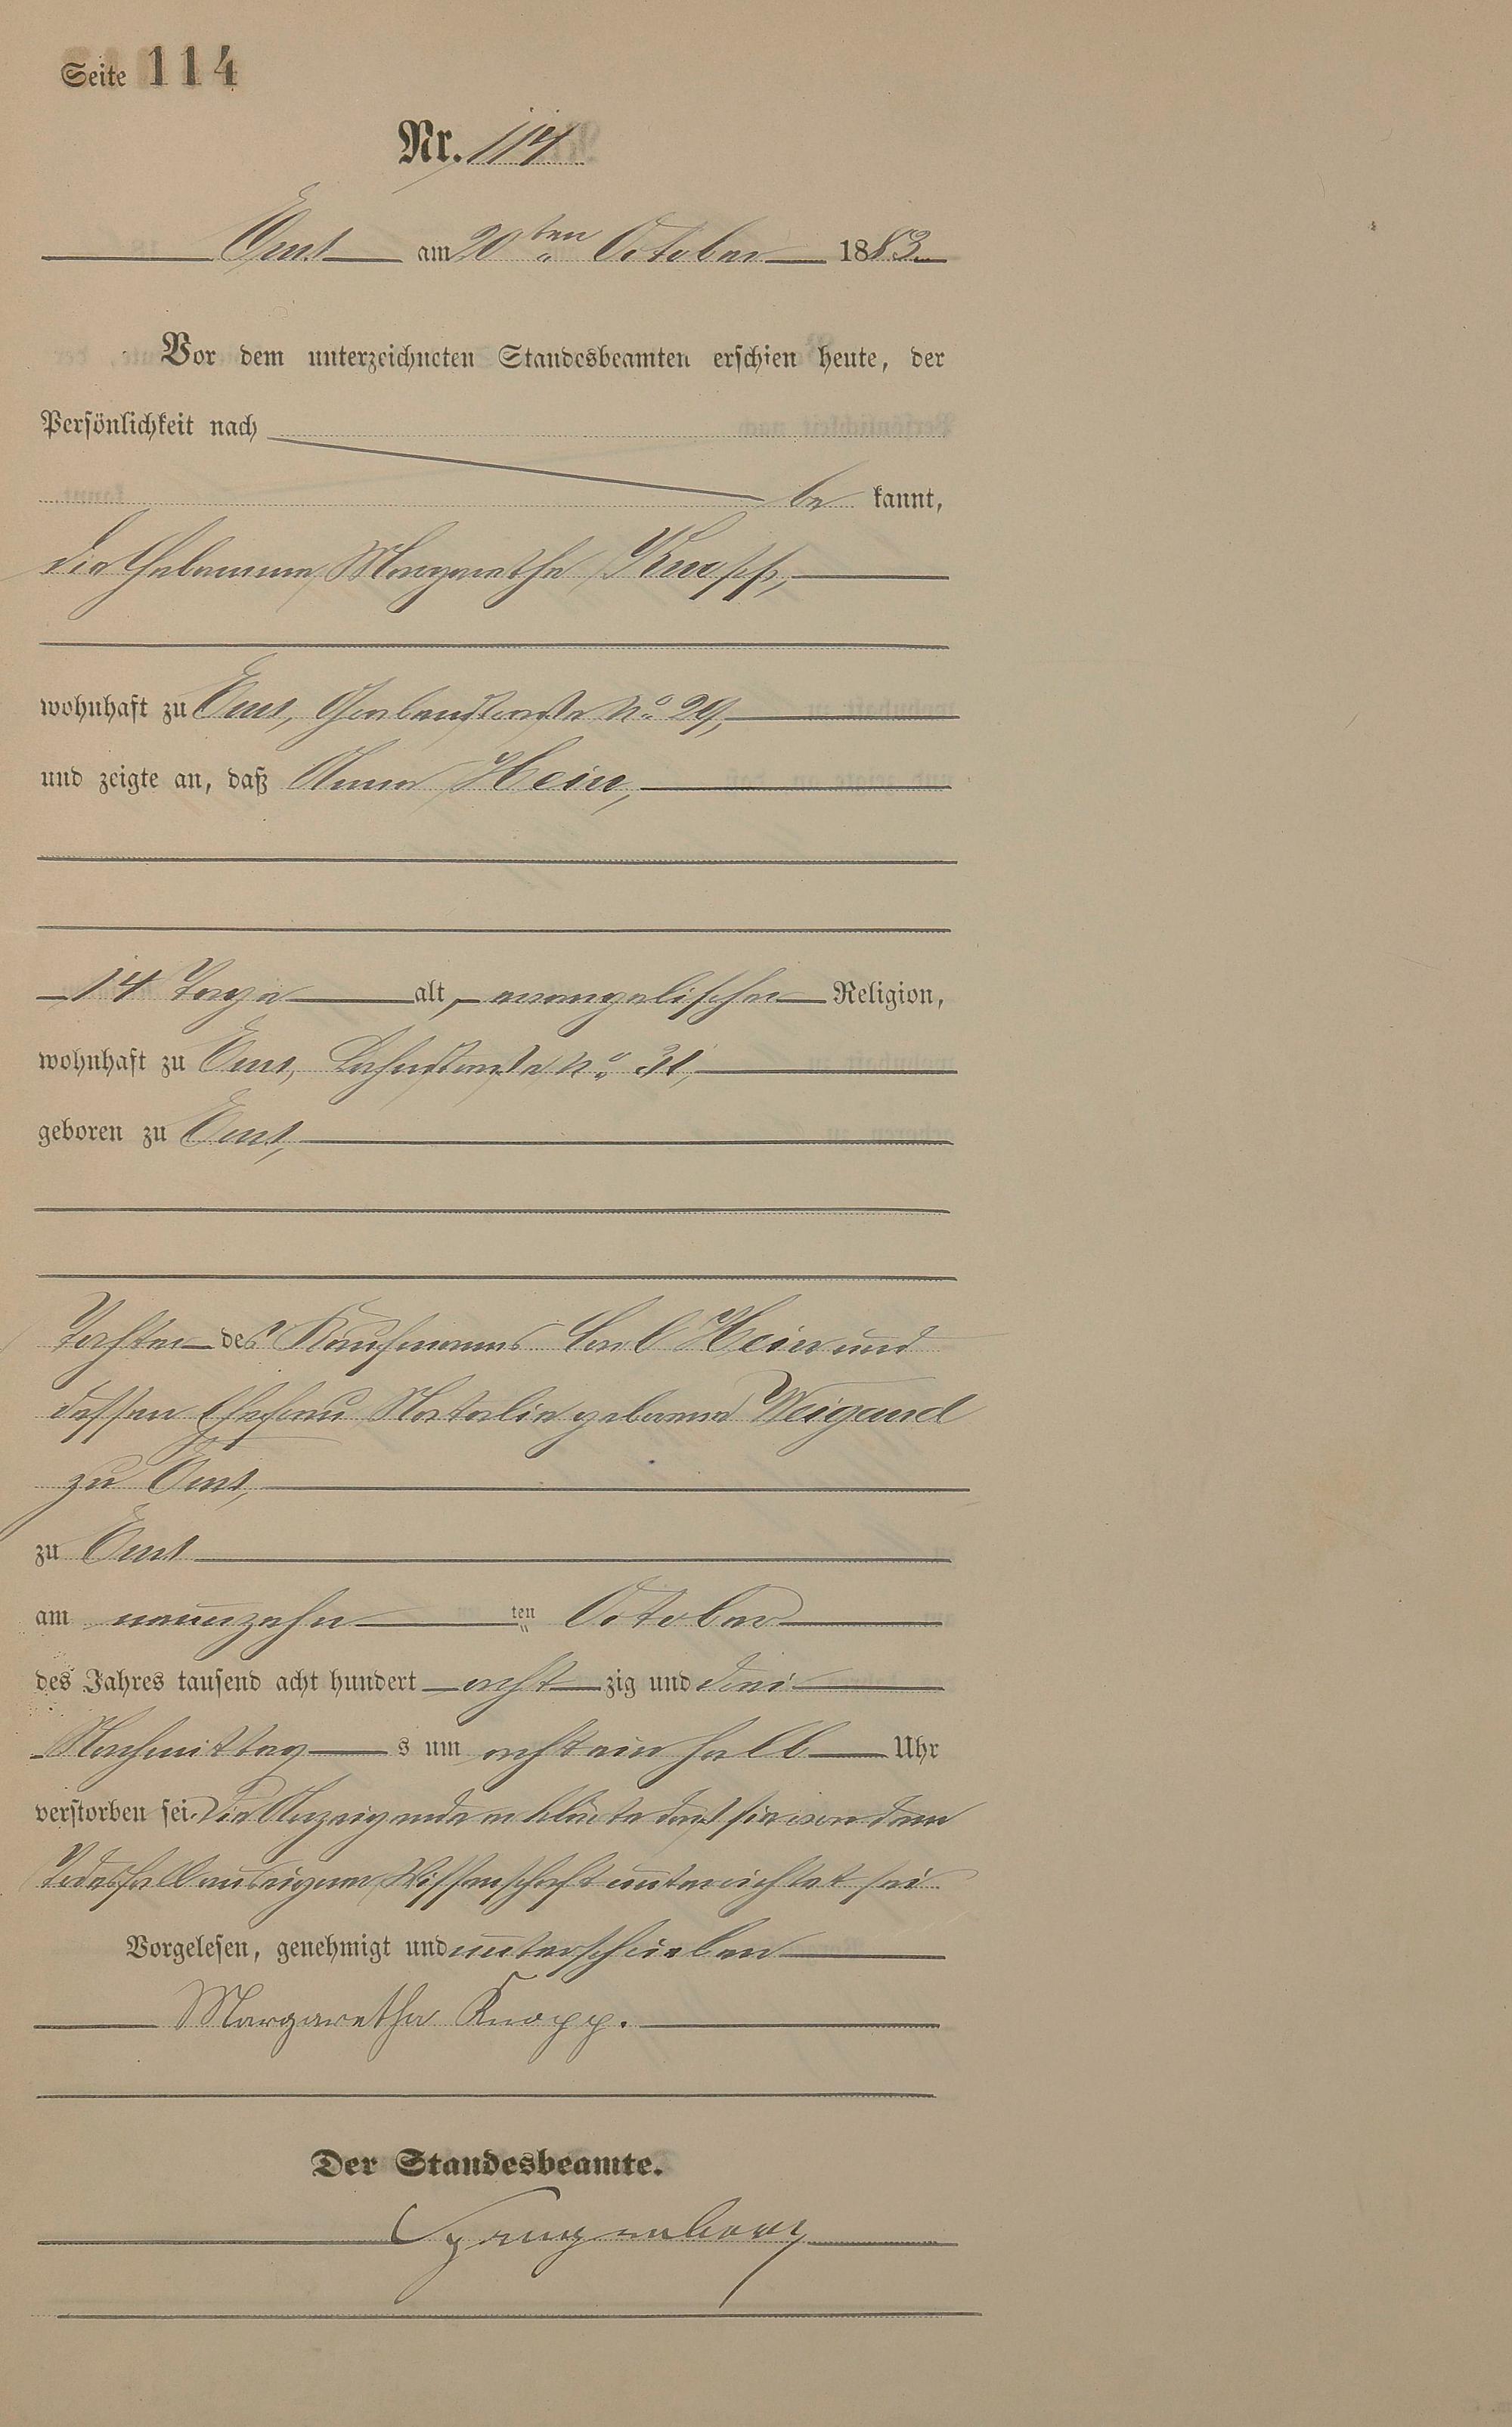 Seite 114
Nr. 114
Ems am 20ten October 1883
Vor dem unterzeichneten Standesbeamten erschien heute, der
Persönlichkeit nach
be kannt,
die Hebamme Margarethe Knopp,
wohnhaft zu Ems, Grabenstraße No. 29,
und zeigte an, daß Anna Hein,
14 Tage alt, evangelischer Religion,
wohnhaft zu Ems, Lahnstraße No. 31,
geboren zu Ems,
Tochter des Kaufmanns Carl Hein und
dessen Ehefrau Natalie geborene Weigand
zu Ems,
zu Ems
am neunzehn ten October
des Jahres tausend acht hundert acht zig und drei
Nachmittag s um acht ein halb Uhr
verstorben sei. Die Anzeigende erklärte daß sie von dem
Todesfall aus eigener Wissenschaft unterrichtet sei.
Vorgelesen, genehmigt und unterschrieben
Margaretha Knopp.
Der Standesbeamte.
Spangenberg